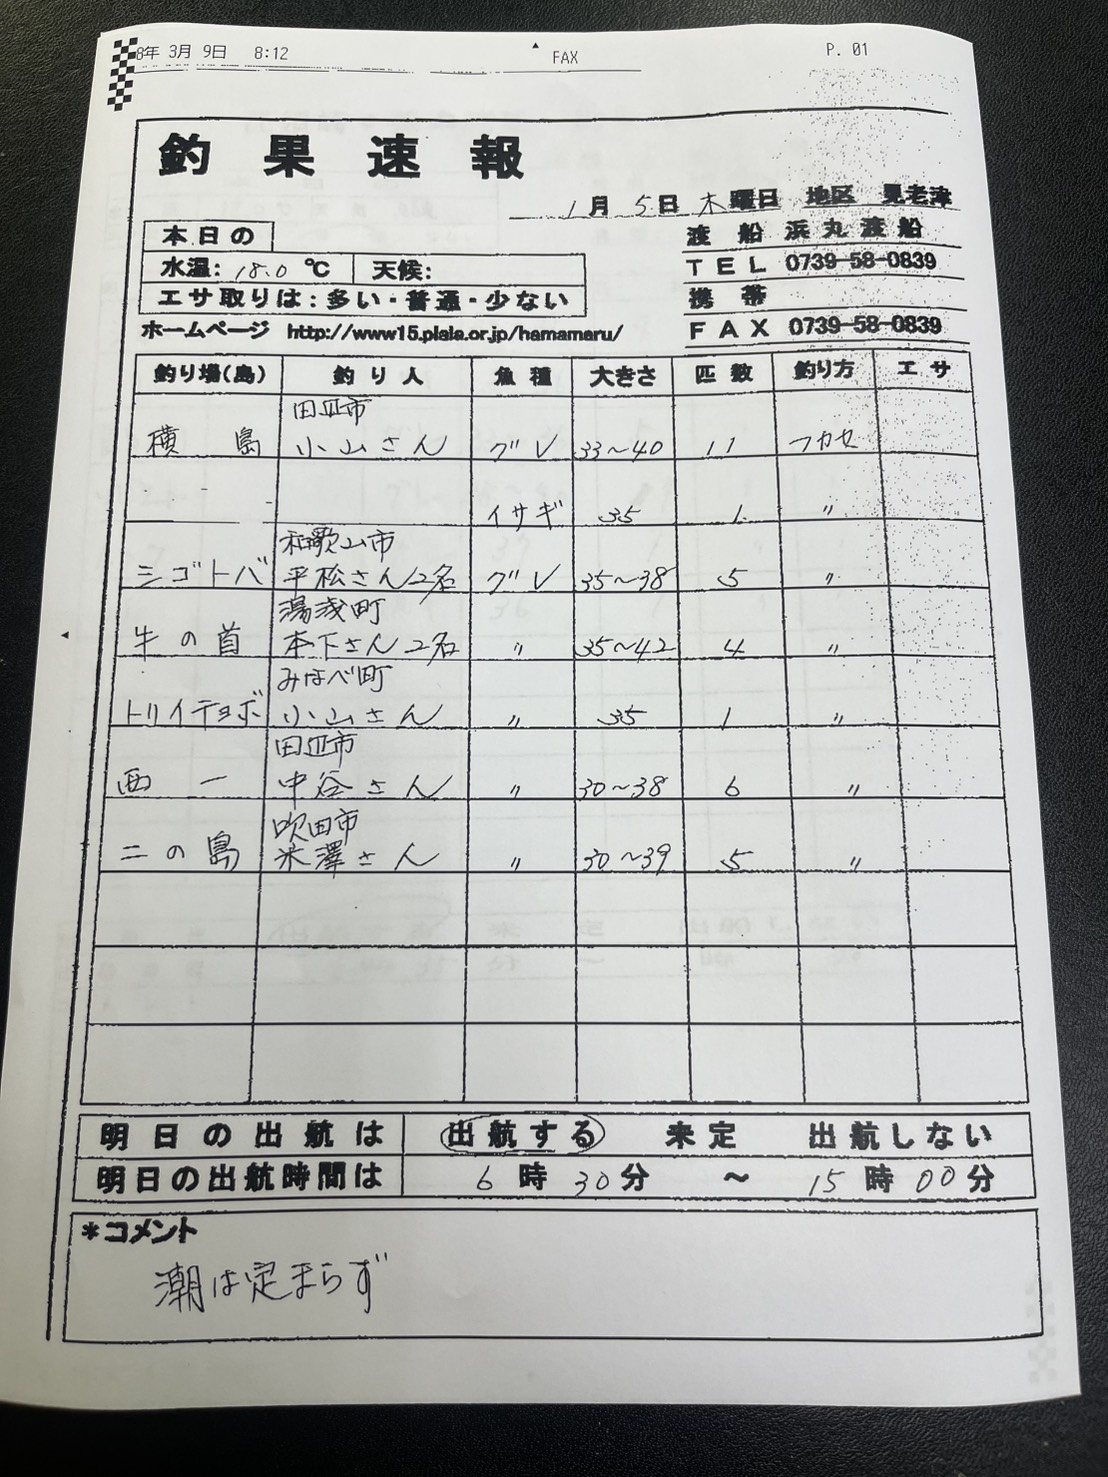 8年 3月 9日 8:12 FAX P. 01
釣果速報
1月 5日 木曜日 地区 見老津
本日の
水温: 18.0 ℃ 天候:
エサ取りは:多い・普通・少ない
渡船 浜丸渡船
TEL 0739-58-0839
携帯
FAX 0739-58-0839
ホームページ http://www15.plala.or.jp/hamamaru/
釣り場(島) 釣り人 魚種 大きさ 匹数 釣り方 エサ
田辺市
横島 小山さん グレ 33〜40 11 フカセ
イサギ 35 1 〃
和歌山市
シゴトバ 平松さん2名 グレ 35〜38 5 〃
湯浅町
牛の首 本下さん2名 〃 35〜42 4 〃
みなべ町
トリイチョボ 小山さん 〃 35 1 〃
田辺市
西一 中谷さん 〃 30〜38 6 〃
吹田市
二の島 米澤さん 〃 30〜39 5 〃
明日の出航は 出航する 未定 出航しない
明日の出航時間は 6時30分 〜 15時00分
*コメント
潮は定まらず